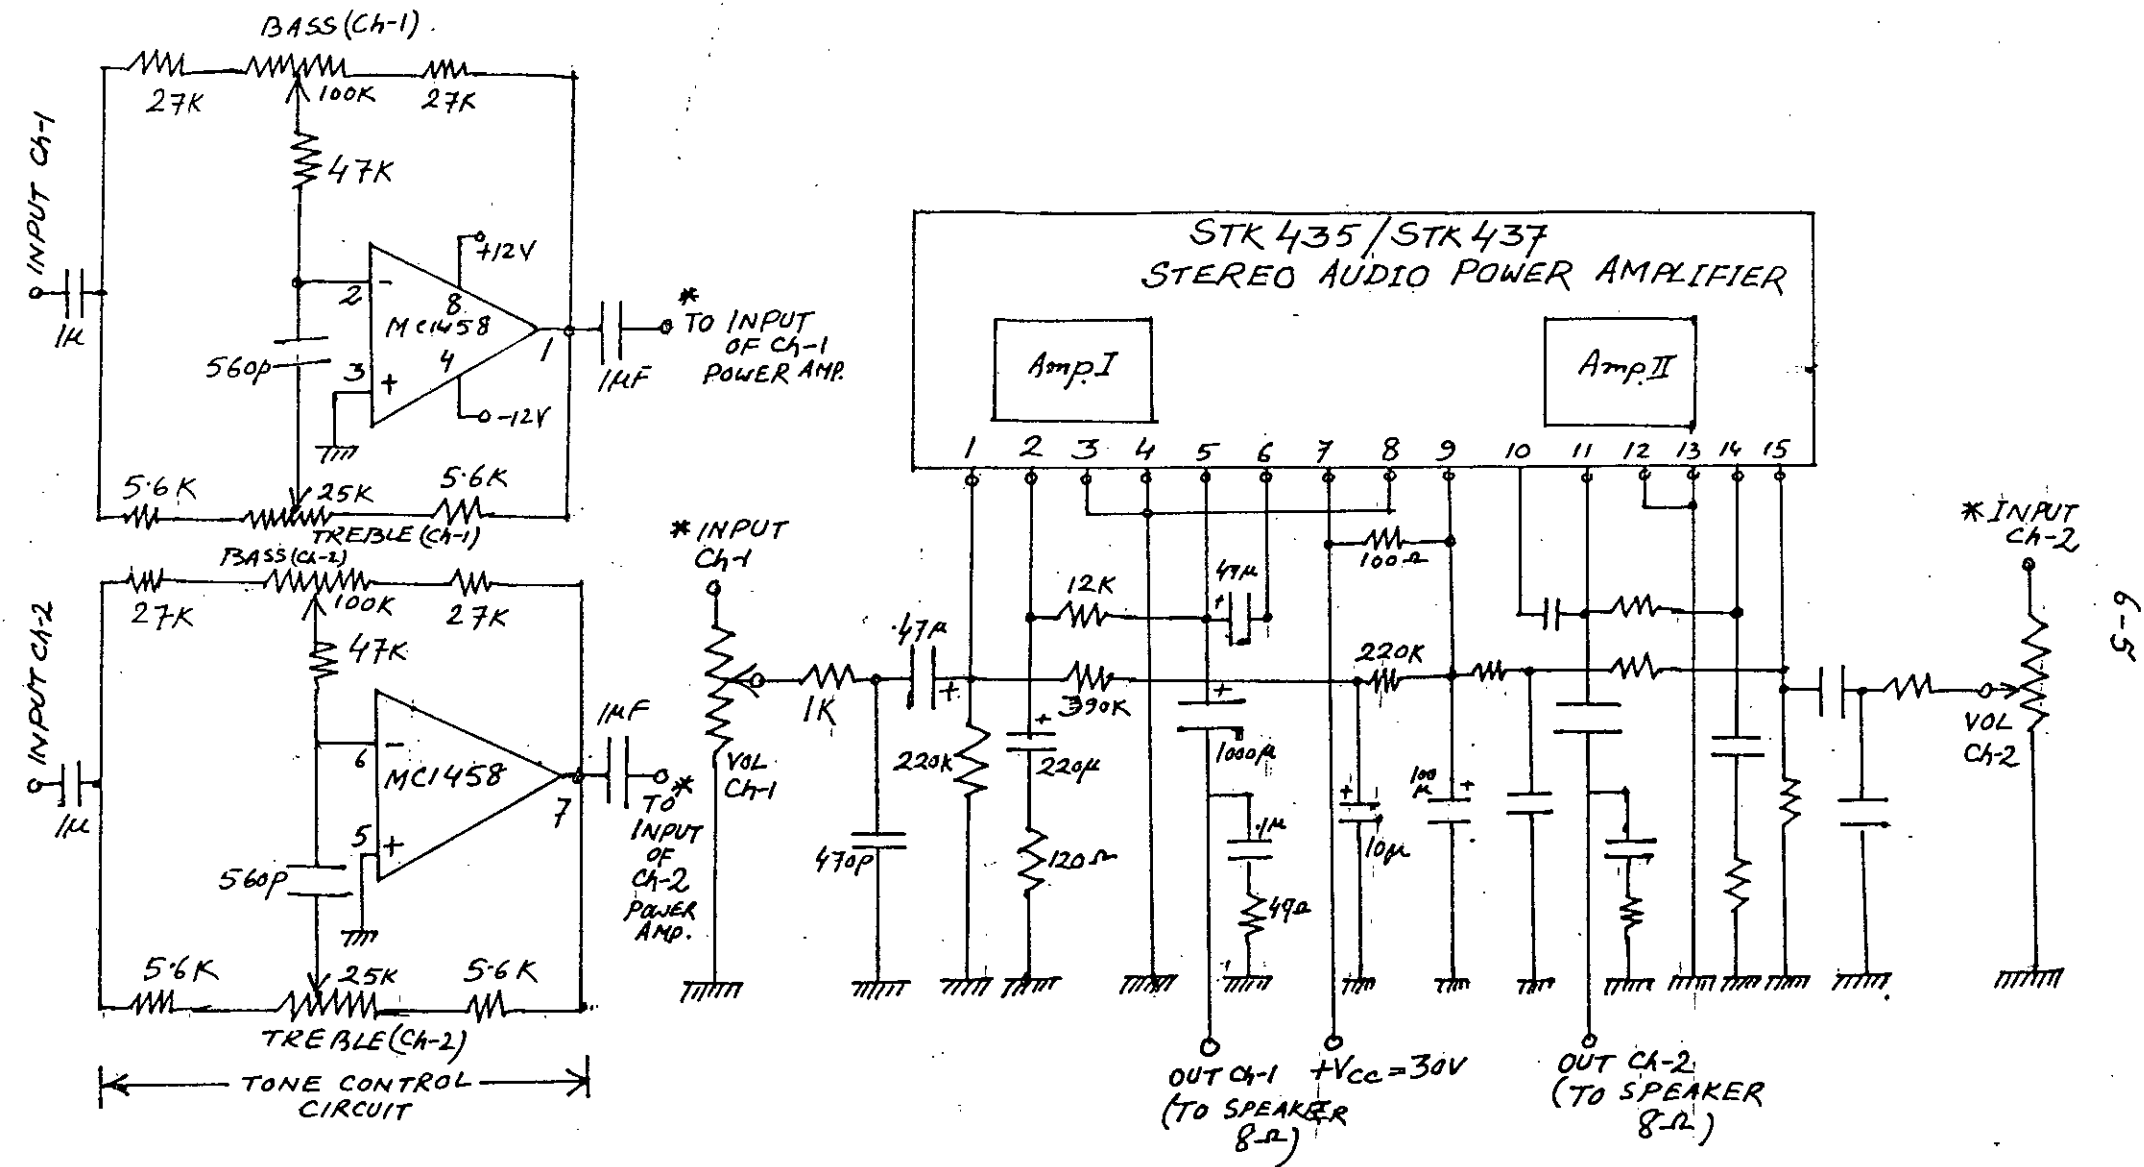 BASS (Ch-1).
27K
100K
27K
INPUT Ch-1
47K
+12V
2
-
8
MC1458
4
3
+
1
560p
1μ
1μF
*
TO INPUT
OF Ch-1
POWER AMP.
-12V
5.6K
25K
5.6K
TREBLE (Ch-1)
BASS (Ch-2)
27K
100K
27K
INPUT Ch-2
47K
6
-
MC1458
7
5
+
560p
1μ
1μF
TO *
INPUT
OF
Ch-2
POWER
AMP.
5.6K
25K
5.6K
TREBLE (Ch-2)
TONE CONTROL
CIRCUIT
STK 435/STK 437
STEREO AUDIO POWER AMPLIFIER
Amp.I
Amp.II
1 2 3 4 5 6 7 8 9 10 11 12 13 14 15
* INPUT
Ch-1
VOL
Ch-1
1K
.47μ
+
470p
220K
12K
390K
+
220μ
120Ω
47μ
+
+
1000μ
.1μ
49Ω
100Ω
220K
+
10μ
100
μ
+
* INPUT
Ch-2
VOL
Ch-2
OUT Ch-1
(TO SPEAKER
8Ω)
+Vcc = 30V
OUT Ch-2
(TO SPEAKER
8Ω)
6-5